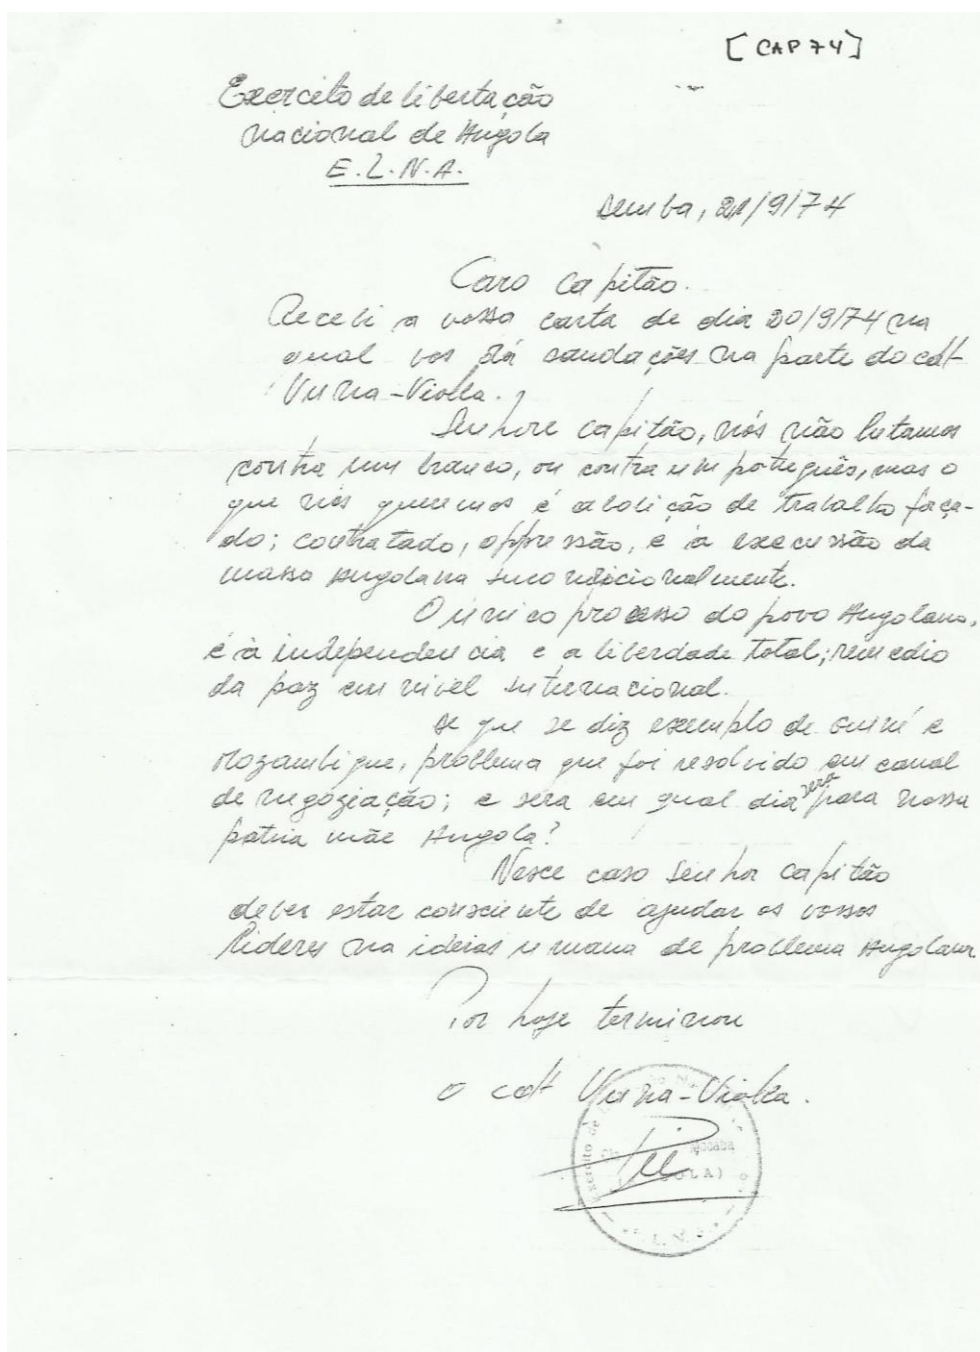 [CAP 74]
Exercito de libertação
nacional de Angola
E.L.N.A.
Bemba, 21/9/74
Caro Capitão.
Recebi a vossa carta de dia 20/9/74 na
qual vos dá saudações na parte do cdt
Vuna-Violla.
Senhore Capitão, nós não lutamos
contra um branco, ou contra um português, mas o
que nós queremos é abolição de trabalho força-
do; contratado, oppressão, e à execussão da
massa Angolana incondicionalmente.
O único processo do povo Angolano,
é à independencia e a liberdade total; remedio
da paz em nivel internacional.
Se que se diz exemplo de Guiné e
Mozambique, problema que foi resolvido em canal
de negóziação; e sera em qual dia será para nossa
patria mãe Angola?
Nesce caso Senhor Capitão
dever estar consciente de ajudar os vossos
lideres na ideias umana de problema Angolana
Por hoje terminou
o cdt Vuna-Violla.
Exercito de
OLA)